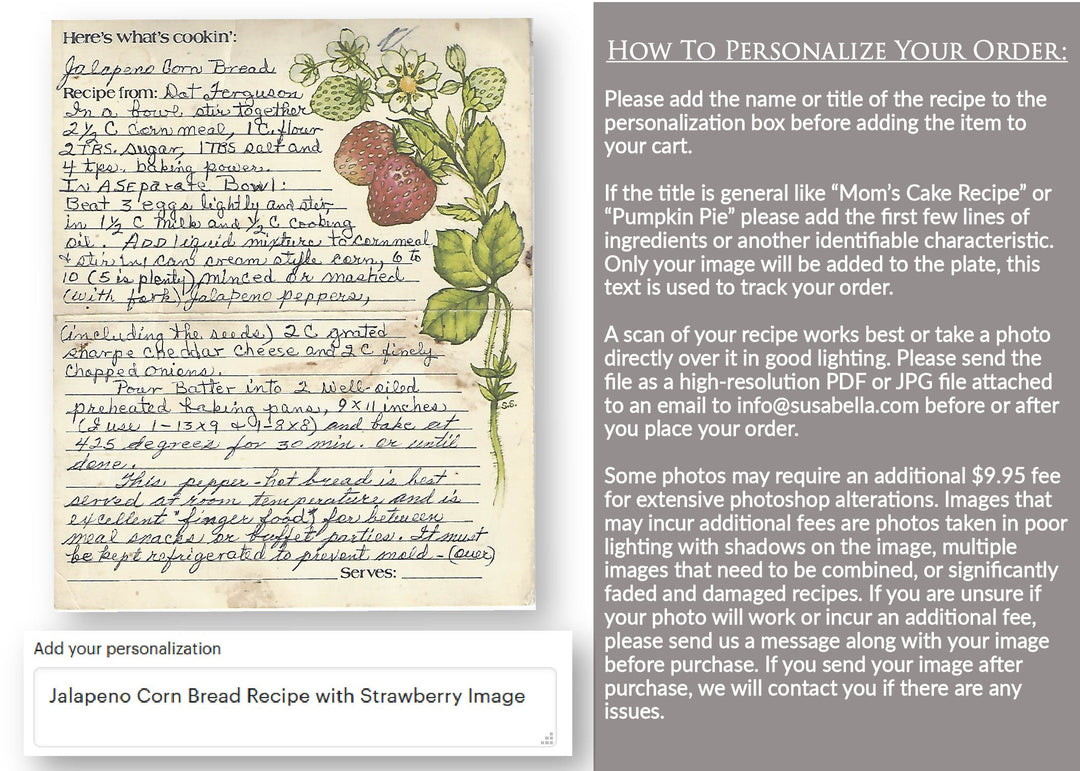 Here's what's cookin':
Jalapeno Corn Bread
Recipe from: Dot Ferguson
In a bowl stir together
2 1/2 C corn meal, 1 C. flour
2 TBS. sugar, 1 TBS salt and
4 tps. baking power.
In A Separate Bowl:
Beat 3 eggs lightly and stir
in 1 1/2 C milk and 1/2 C cooking
oil. Add liquid mixture to cornmeal
& stir in 1 can cream style corn, 6 to
10 (5 is plenty) minced or mashed
(with fork) Jalapeno peppers,
(including the seeds) 2 C grated
sharpe cheddar cheese and 2 C finely
chopped onions.
Pour Batter into 2 well-oiled
preheated baking pans, 9x11 inches
(I use 1-13x9 & 1-8x8) and bake at
425 degrees for 30 min. or until
done.
This pepper-hot bread is best
served at room temperature and is
excellent "finger food" for between
meal snacks or buffet parties. It must
be kept refrigerated to prevent mold - (over)
Serves:
S.S.
Add your personalization
Jalapeno Corn Bread Recipe with Strawberry Image
How To Personalize Your Order:
Please add the name or title of the recipe to the
personalization box before adding the item to
your cart.
If the title is general like “Mom’s Cake Recipe” or
“Pumpkin Pie” please add the first few lines of
ingredients or another identifiable characteristic.
Only your image will be added to the plate, this
text is used to track your order.
A scan of your recipe works best or take a photo
directly over it in good lighting. Please send the
file as a high-resolution PDF or JPG file attached
to an email to info@susabella.com before or after
you place your order.
Some photos may require an additional $9.95 fee
for extensive photoshop alterations. Images that
may incur additional fees are photos taken in poor
lighting with shadows on the image, multiple
images that need to be combined, or significantly
faded and damaged recipes. If you are unsure if
your photo will work or incur an additional fee,
please send us a message along with your image
before purchase. If you send your image after
purchase, we will contact you if there are any
issues.